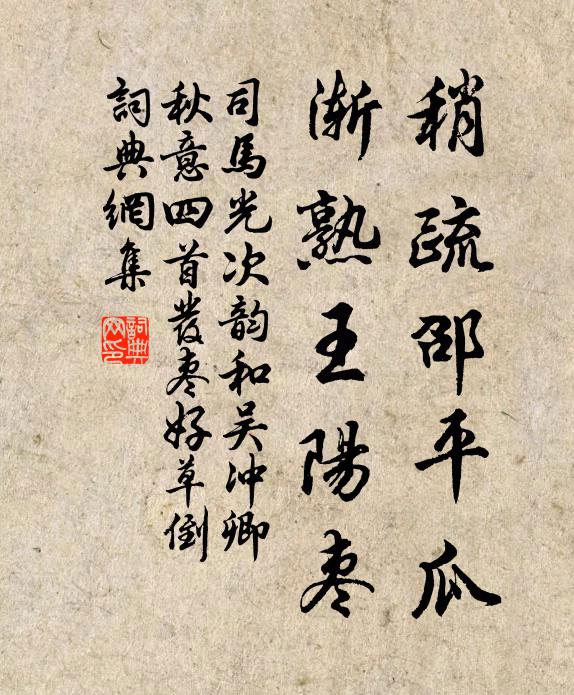 稍疏邵平瓜
漸熟王陽棗
司馬光次韵和吴冲卿
秋意四首叢棗好草倒
詞典網集
詞典网印